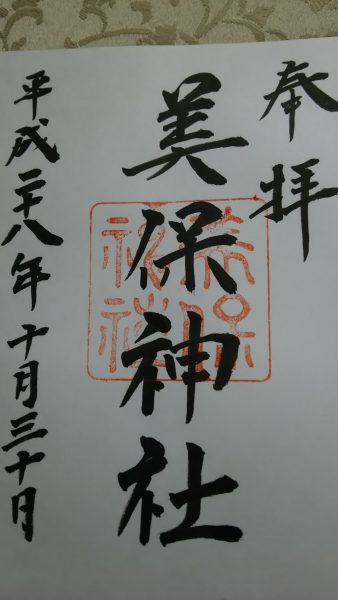 奉拝
美保神社
平成二十八年十月三十日